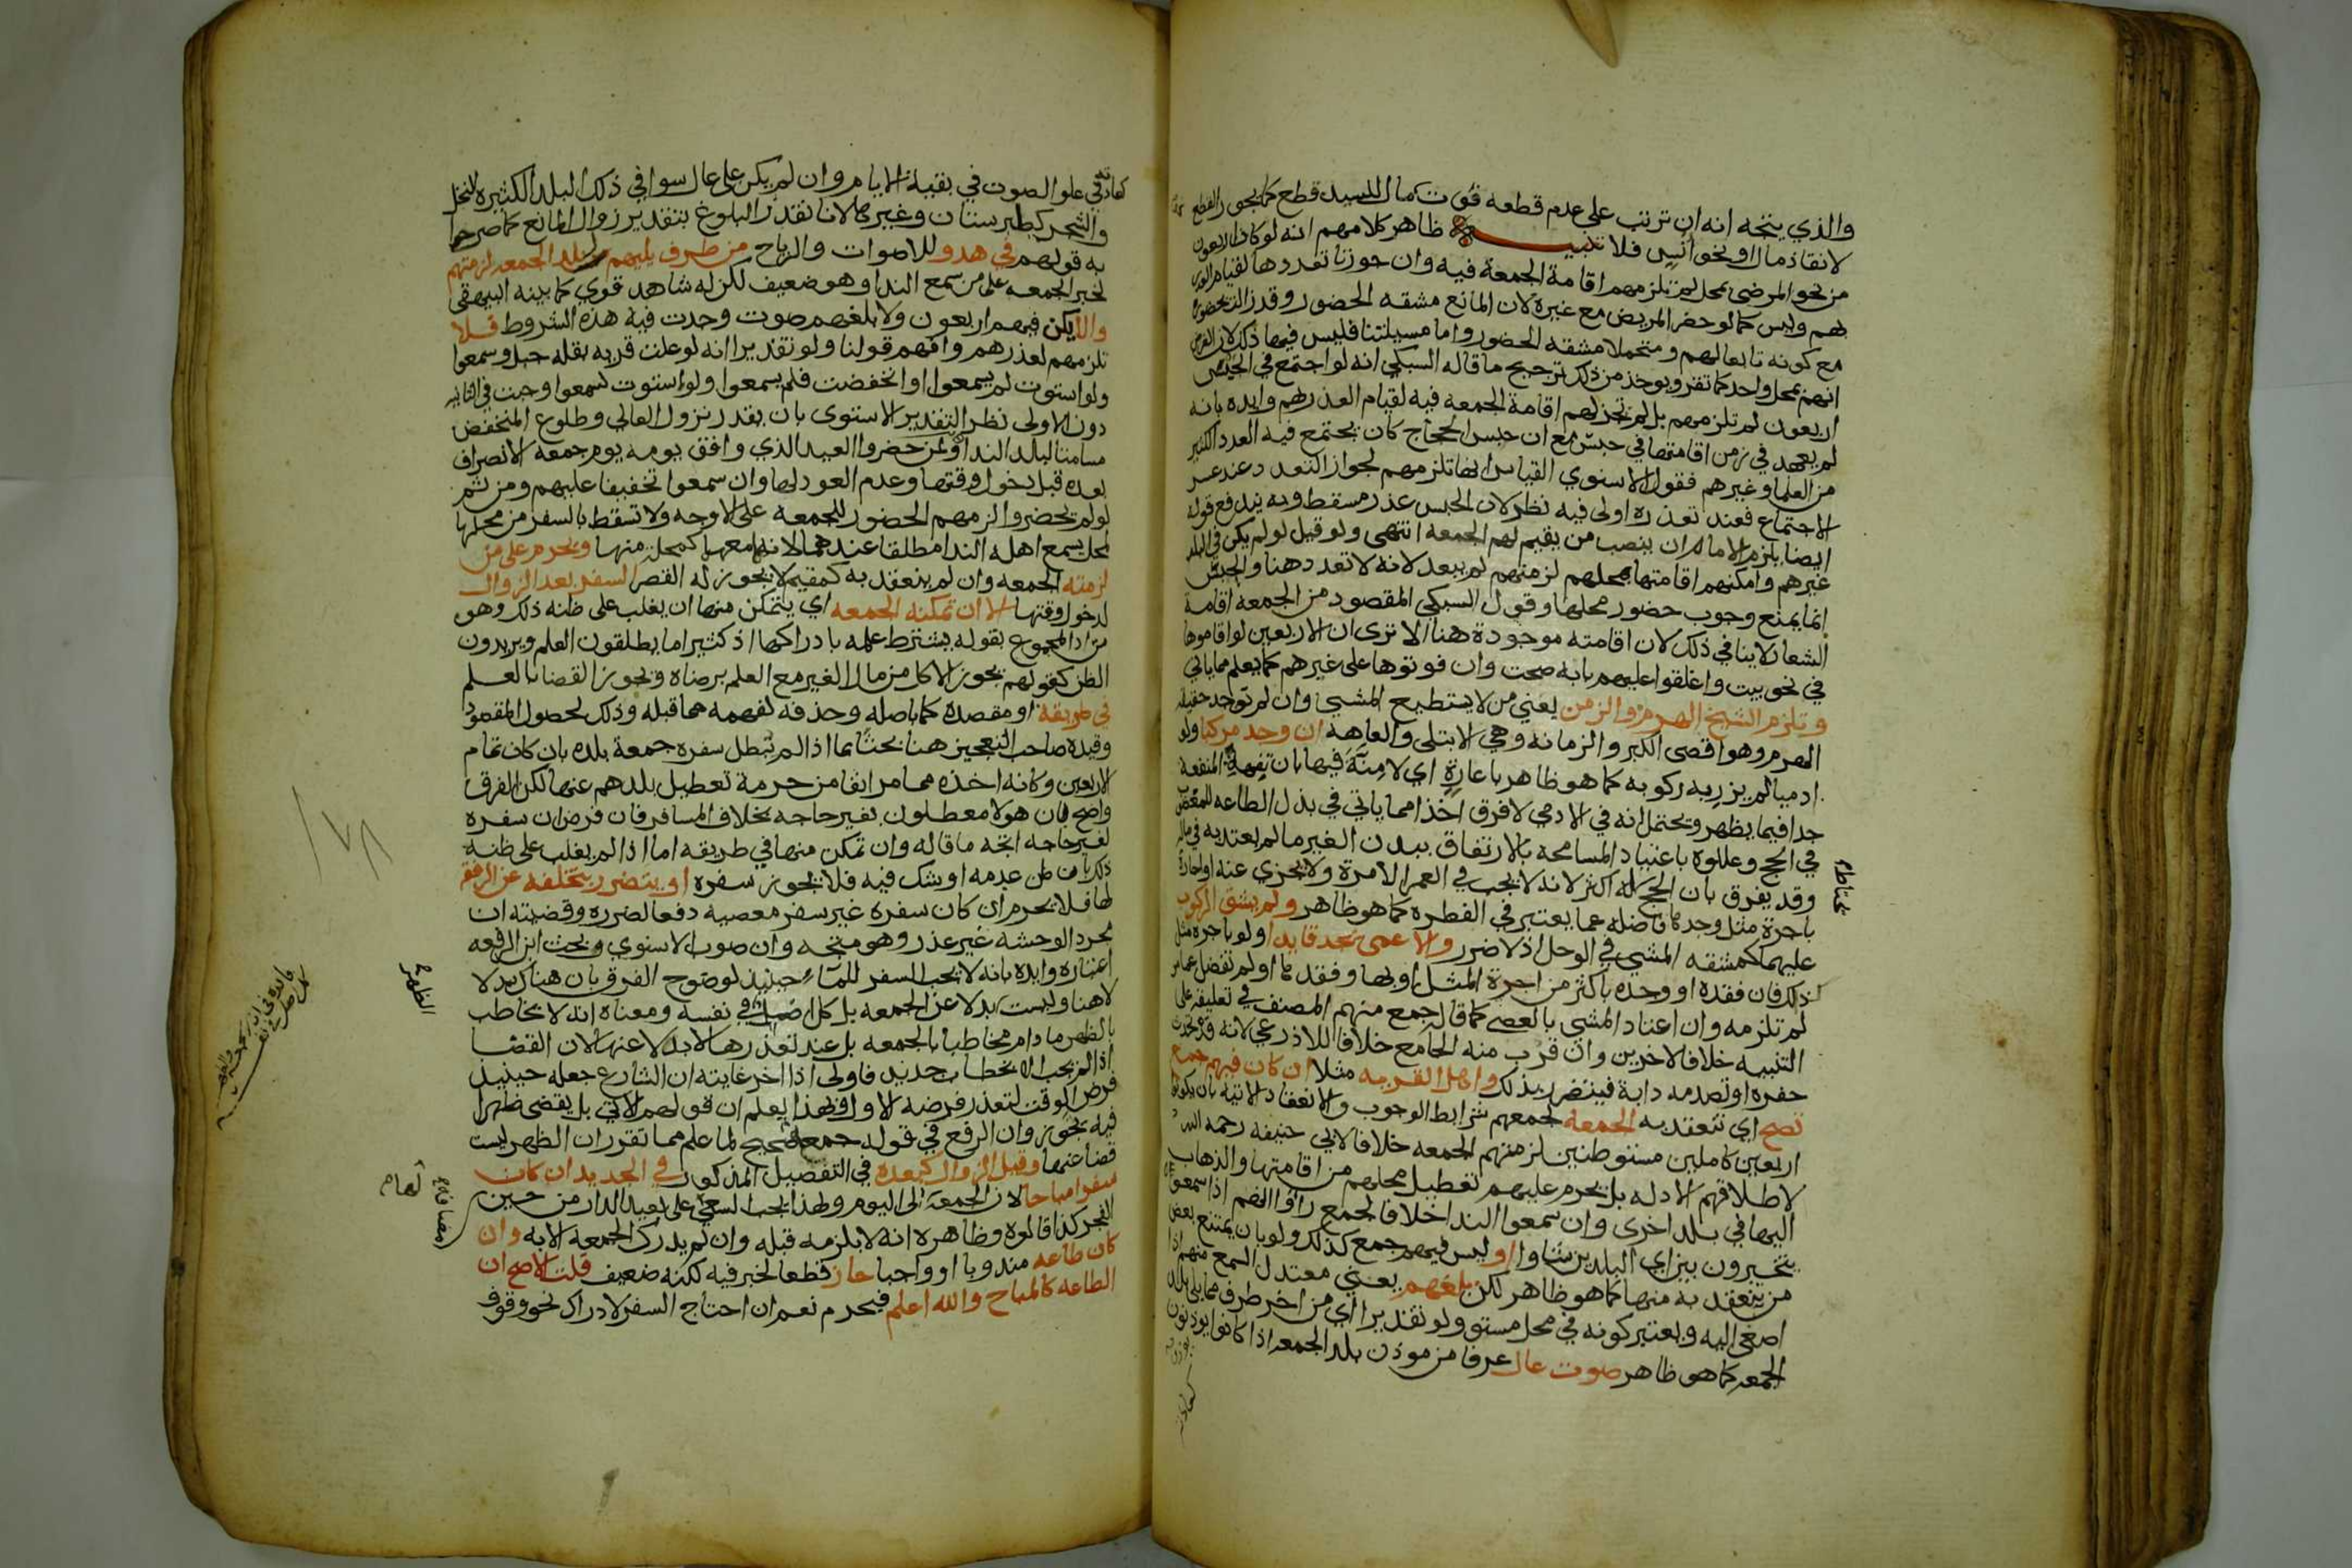 والذي يتجه انه ان ترتب على عدم قطعه فوت مال للسيد قطع كما يجوز القطع
لانقاذ مال او نحو انس فلا تنبيه ظاهر كلامهم انه لو كان اربعون
من نحو المرضى بمحل لم تلزمهم اقامة الجمعة فيه وان جوزنا تعددها لقيام العذر
بهم وليس كما لو حضر المريض مع غيره لان المانع مشقه الحضور وقد زالت بحضوره
مع كونه تابعا لهم ومتحملا مشقه الحضور واما مسيلتنا فليس فيها ذلك لان الفرض
انهم بمحل واحد كما تقرر ويوخذ من ذلك ترجيح ما قاله السبكي انه لو اجتمع في الحبس
اربعون لم تلزمهم بل لم تجز لهم اقامة الجمعه فيه لقيام العذر بهم وايده بانه
لم يعهد في زمن اقامتها في حبس مع ان حبس الحجاج كان يجتمع فيه العدد الكثير
من العلما وغيرهم فقول الاسنوي القياس انها تلزمهم لجواز التعدد عند عسر
الاجتماع فعند تعذره اولى فيه نظر لان الحبس عذر مسقط وبه يندفع قوله
ايضا يلزم الامام ان ينصب من يقيم لهم الجمعه انتهى ولو قيل لو لم يكن في البلد
غيرهم وامكنهم اقامتها بمحلهم لزمتهم لم يبعد لانه لا تعدد هنا والحبس
انما يمنع وجوب حضور محلها وقول السبكي المقصود من الجمعه اقامة
الشعار لا ينافي ذلك لان اقامته موجودة هنا الا ترى ان الاربعين لو اقاموها
في نحو بيت واغلقوا عليهم بابه صحت وان فوتوها على غيرهم كما يعلم مما ياتي
وتلزم الشيخ الهرم والزمن يعني من لا يستطيع المشي وان لم توجد حقيقة
الهرم وهو اقصى الكبر والزمانه وهي الابتلى والعاهه ان وجد مركبا ولو
ادميا لم يزر به ركوبه كما هو ظاهر باعارة اي لا منة فيها بان تفهت المنفعة
جدا فيما يظهر ويحتمل انه في الادمي لا فرق اخذا مما ياتي في بذل الطاعه للمعضوب
في الحج وعللوه باعتياد المسامحه بالارتفاق ببدن الغير ما لم يعتد به في ماله
وقد يفرق بان الحج له اكثر لانه لا يجب في العمر الا مرة ولا يجزي عنه او اجارة
باجرة مثل وجدها فاضله عما يعتبر في الفطره كما هو ظاهر ولم يشق الركوب
عليهما كمشقه المشي في الوحل اذ لا ضرر والاعمى يجد قايدا ولو باجره مثل
كذلك فان فقده او وجده باكثر من اجرة المثل او بها وفقدها او لم تفضل عما مر
لم تلزمه وان اعتاد المشي بالعصى كما قاله جمع منهم المصنف في تعليقه على
التنبيه خلافا لاخرين وان قرب منه الجامع خلافا للاذرعي لانه قد تحدث
حفره او تصدمه دابة فيتضرر بذلك واهل القريه مثلا ان كان فيهم جمع
تصح اي تنعقد به الجمعه لجمعهم شرايط الوجوب والانعقاد الاتيه بان يكونوا
اربعين كاملين مستوطنين لزمتهم الجمعه خلافا لابي حنيفه رحمه الله
لاطلاقهم الادله بل يحرم عليهم تعطيل محلهم من اقامتها والذهاب
اليها في بلد اخرى وان سمعوا الندا خلافا لجمع راوا انهم اذا سمعوه
يتخيرون بين اي البلدين شاوا او ليس فيهم جمع كذلك ولو بان يمتنع بعض
من ينعقد به منها كما هو ظاهر لكن بلغهم يعني معتدل السمع منهم اذا
اصغى اليه ويعتبر كونه في محل مستو ولو تقديرا اي من اخر طرف مما يلي بلد
الجمعه كما هو ظاهر صوت عال عرفا من موذن بلد الجمعه اذا كانوا يوذنون
كعادته في علو الصوت في بقية الايام وان لم يكن على عال سوا في ذلك البلد الكثيره النخل
والشجر كطبرستان وغيرها لانا نقدر البلوغ بتقدير زوال المانع كما صرحوا
به قولهم في هدو للاصوات والرياح من طرف يليهم لبلد الجمعه لزمتهم
لخبر الجمعه على من سمع الندا وهو ضعيف لكن له شاهد قوي كما بينه البيهقي
والا يكن فيهم اربعون ولا بلغهم صوت وجدت فيه هذه الشروط فلا
تلزمهم لعذرهم وافهم قولنا ولو تقديرا انه لو علت قريه بقله جبل وسمعوا
ولو استوت لم يسمعوا او انخفضت فلم يسمعوا ولو استوت لسمعوا وجبت في الثانيه
دون الاولى نظرا لتقدير الاستوى بان يقدر نزول العالي وطلوع المنخفض
مسامتا لبلد الندا ولمن حضروا العيد الذي وافق يومه يوم جمعه الانصراف
بعده قبل دخول وقتها وعدم العود لها وان سمعوا تخفيفا عليهم ومن ثم
لو لم يحضروا لزمهم الحضور للجمعه على الاوجه ولا تسقط بالسفر من محلها
لمحل يسمع اهله الندا مطلقا عندهما لانه معها كمحلة منها ويحرم على من
لزمته الجمعه وان لم ينعقد به كمقيم لا يجوز له القصر السفر بعد الزوال
لدخول وقتها الا ان تمكنه الجمعه اي يتمكن منها ان يغلب على ظنه ذلك وهو
مراد المجموع بقوله يشترط علمه بادراكها اذ كثيرا ما يطلقون العلم ويريدون
الظن كقولهم يجوز الاكل من مال الغير مع العلم برضاه ويجوز القضا بالعلم
في طريقه او مقصده كما باصله وحذفه لفهمه مما قبله وذلك لحصول المقصود
وقيده صاحب التعجيز هنا بحثا بما اذا لم تبطل سفره جمعة بلده بان كان تمام
الاربعين وكانه اخذه مما مر انفا من حرمة تعطيل بلدهم عنها لكن الفرق
واضح فان هولا معطلون بغير حاجه بخلاف المسافر فان فرض ان سفره
لغير حاجه اتجه ما قاله وان تمكن منها في طريقه اما اذا لم يغلب على ظنه
ذلك بان ظن عدمه او شك فيه فلا يجوز سفره او يتضرر بتخلفه عن الرفقة
لها فلا يحرم ان كان سفره غير سفر معصيه دفعا لضرره وقضيته ان
مجرد الوحشه غير عذر وهو متجه وان صوب الاسنوي وبحث ابن الرفعه
اعتباره وايده بانه لا يجب السفر للماء حينيذ لوضوح الفرق بان هناك بدلا
لا هنا وليست بدلا عن الجمعه بل كل اصل في نفسه ومعناه انه لا يخاطب
بالظهر ما دام مخاطبا بالجمعه بل عند تعذرها لا بدلا عنها لان القضا
اذا لم يجب الا بخطاب جديد فاولى اذا اخر غايته ان الشارع جعله حينيذ
فرض الوقت لتعذر فرضه الاول وبهذا يعلم ان قولهم الاتي بل يقضي ظهرا
فيه تجوز وان الرفع في قوله جمعة صحيح لما علم مما تقرر ان الظهر ليست
قضا عنها وقبل الزوال كبعده في التفصيل المذكور في الجديد ان كان
سفرا مباحا لان الجمعة الى اليوم ولهذا يجب السعي على بعيد الدار من حين
الفجر كذا قالوه وظاهره انه لا يلزمه قبله وان لم يدرك الجمعه الا به وان
كان طاعه مندوبا او واجبا جاز قطعا لخبر فيه لكنه ضعيف قلت الاصح ان
الطاعه كالمباح والله اعلم فيحرم نعم ان احتاج السفر لادراك نحو وقوف
الظهر